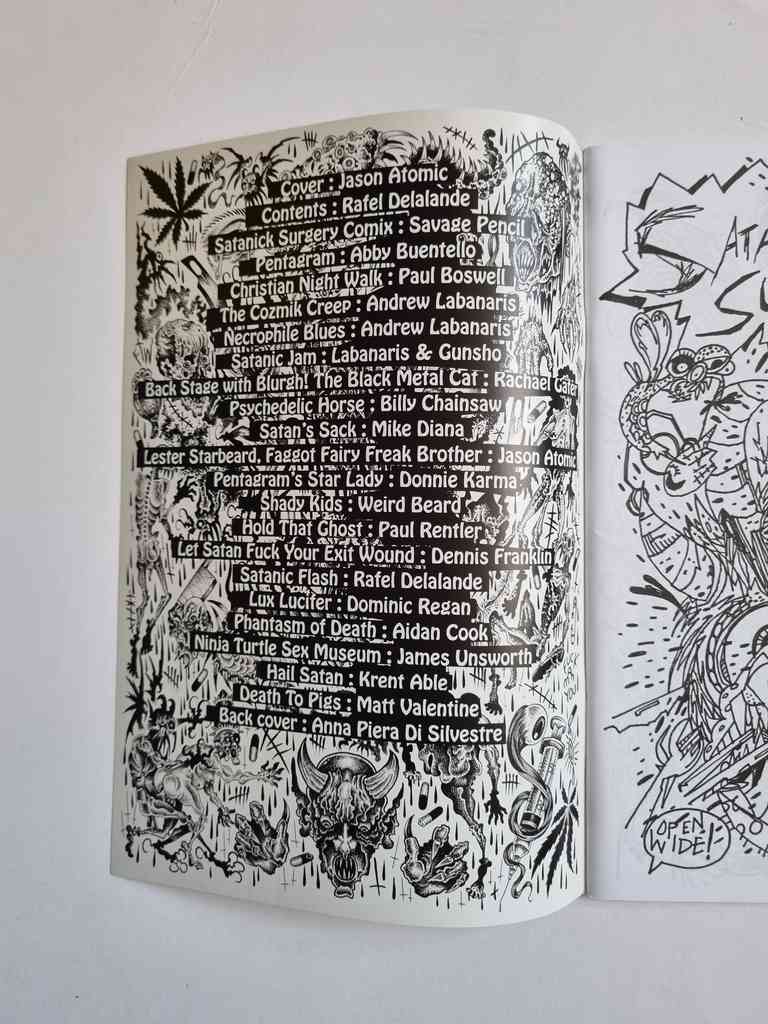 Cover : Jason Atomic
Contents : Rafel Delalande
Satanick Surgery Comix : Savage Pencil
Pentagram : Abby Buentello
Christian Night Walk : Paul Boswell
The Cozmik Creep : Andrew Labanaris
Necrophile Blues : Andrew Labanaris
Satanic Jam : Labanaris & Gunsho
Back Stage with Blurgh! The Black Metal Cat : Rachael
Psychedelic Horse : Billy Chainsaw
Satan's Sack : Mike Diana
Lester Starbeard, Faggot Fairy Freak Brother : Jason Atomic
Pentagram's Star Lady : Donnie Karma
Shady Kids : Weird Beard
Hold That Ghost : Paul Rentler
Let Satan Fuck Your Exit Wound : Dennis Franklin
Satanic Flash : Rafel Delalande
Lux Lucifer : Dominic Regan
Phantasm of Death : Aidan Cook
Ninja Turtle Sex Museum : James Unsworth
Hail Satan : Krent Able
Death To Pigs : Matt Valentine
Back cover : Anna Piera Di Silvestre
OPEN
WIDE!